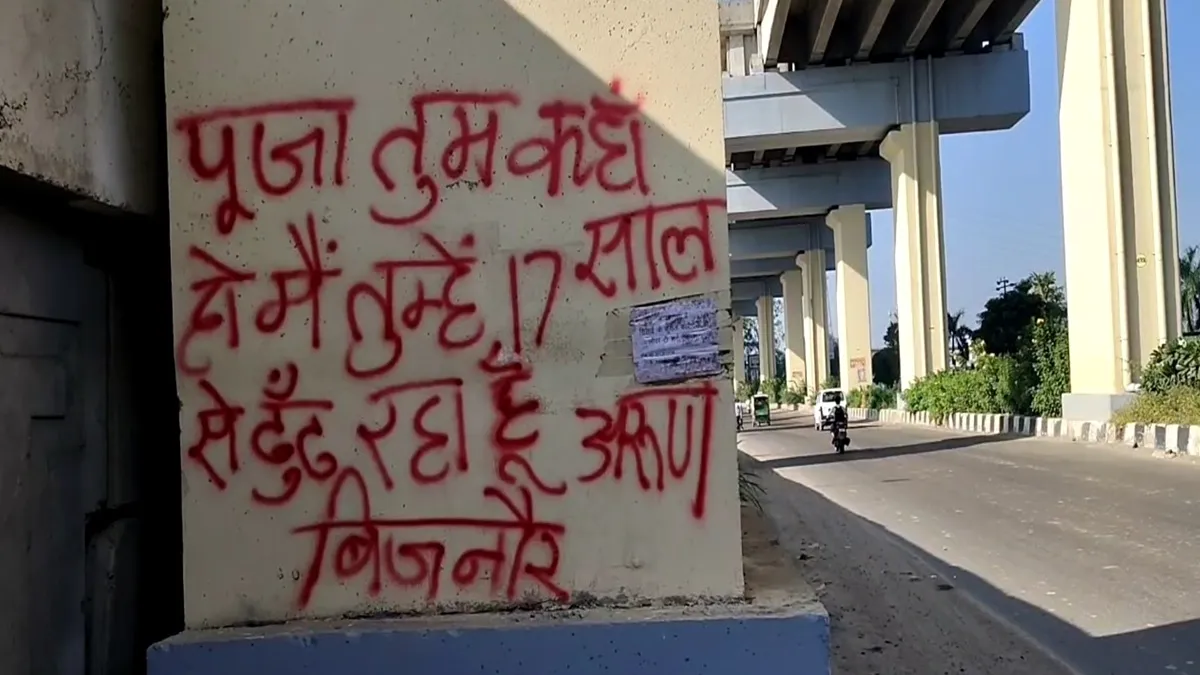 पूजा तुम कहाँ
हो मैं तुम्हें 17 साल
से ढुँढ रहा हूँ अरूण
बिजनौर